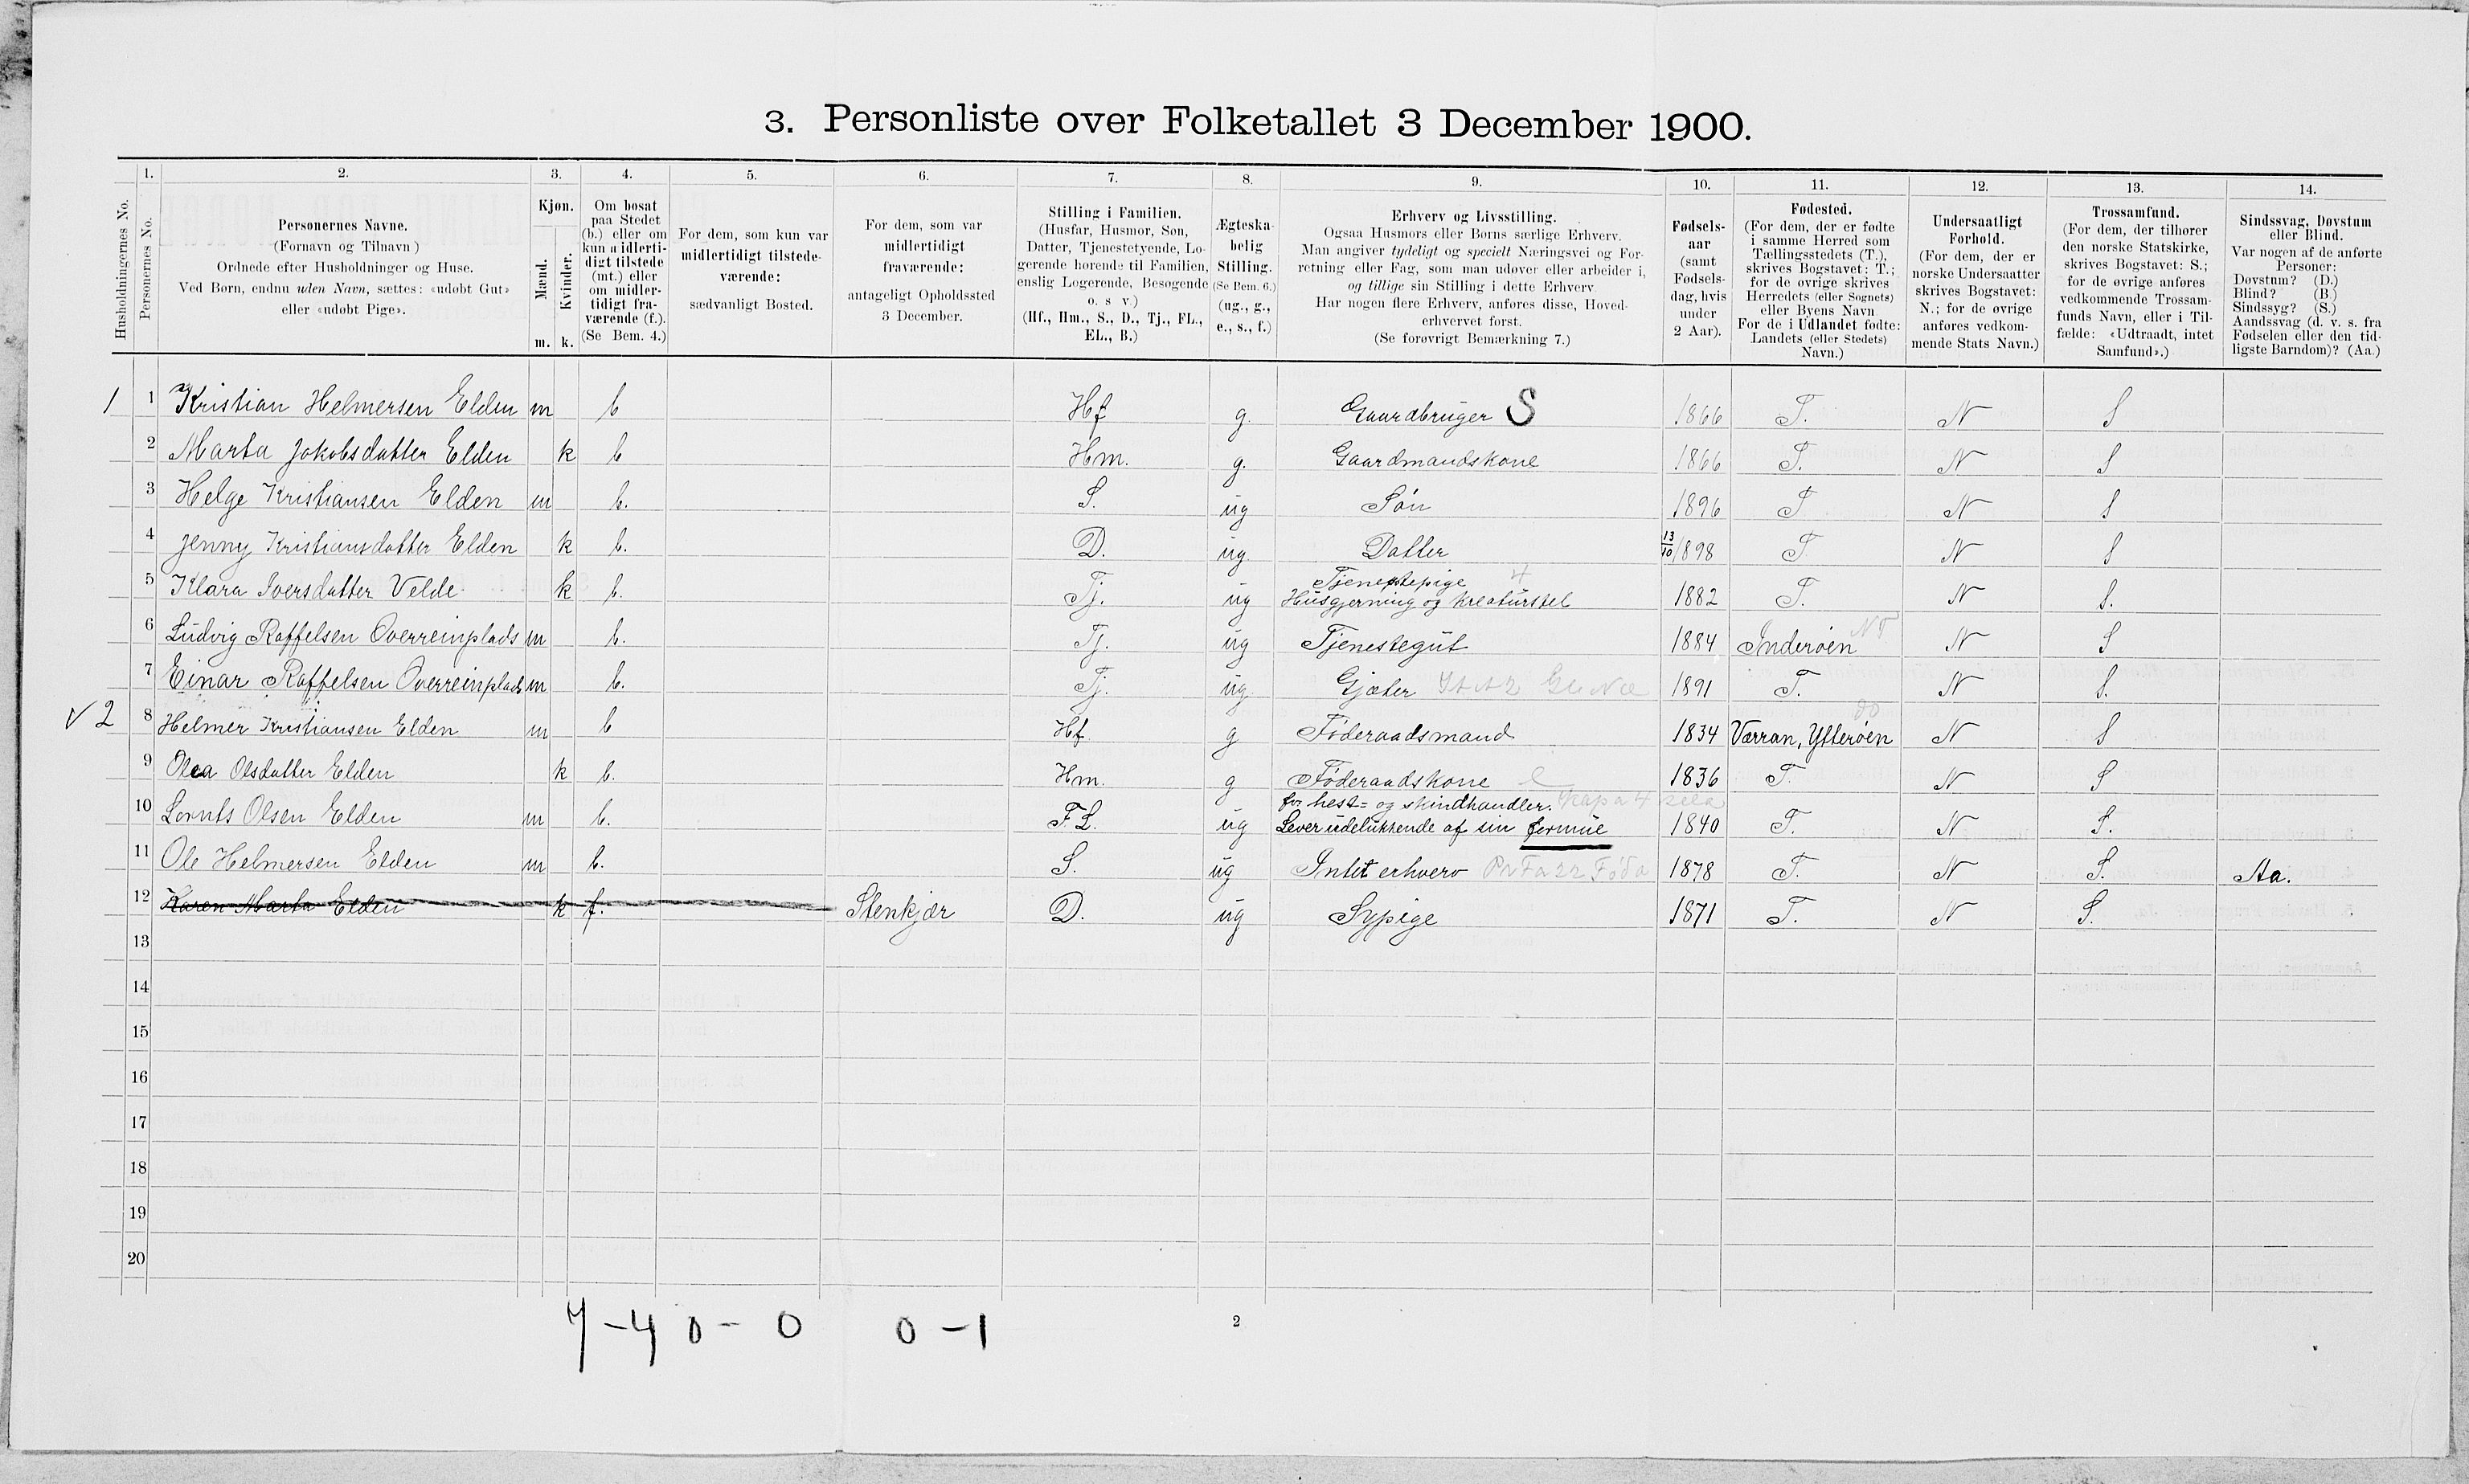 3. Personliste over Folketallet 3 December 1900.
Husholdningernes No.
1.
Personernes No.
2.
Personernes Navne.
(Fornavn og Tilnavn)
Ordnede efter Husholdninger og Huse.
Ved Børn, endnu uden Navn, sættes: «udøbt Gut»
eller «udøbt Pige».
3.
Kjøn.
Mænd.
Kvinder.
m. k.
4.
Om bosat
paa Stedet
(b.) eller om
kun midlerti-
digt tilstede
(mt.) eller
om midler-
tidigt fra-
værende (f.).
(Se Bem. 4.)
5.
For dem, som kun var
midlertidigt tilstede-
værende:
sædvanligt Bosted.
6.
For dem, som var
midlertidigt
fraværende:
antageligt Opholdssted
3 December.
7.
Stilling i Familien.
(Husfar, Husmor, Søn,
Datter, Tjenestetyende, Lo-
gerende hørende til Familien,
enslig Logerende, Besøgende
o. s. v.)
(Hf., Hm., S., D., Tj., FL.,
EL., B.)
8.
Ægteska-
belig
Stilling.
(Se Bem. 6.)
(ug., g.,
e., s., f.)
9.
Erhverv og Livsstilling.
Ogsaa Husmors eller Børns særlige Erhverv.
Man angiver tydeligt og specielt Næringsvei og For-
retning eller Fag, som man udøver eller arbeider i,
og tillige sin Stilling i dette Erhverv
Har nogen flere Erhverv, anføres disse, Hoved-
erhvervet først.
(Se forøvrigt Bemærkning 7.)
10.
Fødsels-
aar
(samt
Fødsels-
dag, hvis
under
2 Aar).
11.
Fødested.
(For dem, der er fødte
i samme Herred som
Tællingsstedets (T.),
skrives Bogstavet: T.;
for de øvrige skrives
Herredets (eller Sognets)
eller Byens Navn
For de i Udlandet fødte:
Landets (eller Stedets)
Navn.)
12.
Undersaatligt
Forhold.
(For dem, der er
norske Undersaatter
skrives Bogstavet:
N.; for de øvrige
anføres vedkom-
mende Stats Navn.)
13.
Trossamfund.
(For dem, der tilhører
den norske Statskirke,
skrives Bogstavet: S.;
for de øvrige anføres
vedkommende Trossam-
funds Navn, eller i Til-
fælde: «Udtraadt, intet
Samfund».)
14.
Sindssvag, Døvstum
eller Blind.
Var nogen af de anførte
Personer:
Døvstum? (D.)
Blind? (B.)
Sindssyg? (S.)
Aandssvag (d. v. s. fra
Fødselen eller den tid-
ligste Barndom)? (Aa.)
1 1 Kristian Helmersen Elden m b Hf g. Gaardbruger S 1866 T. N S
2 Marta Jakobsdatter Elden k b Hm. g. Gaardmandskone 1866 T. N S
3 Helge Kristiansen Elden m b. S. ug Søn 1896 T N S
4 Jenny Kristiansdatter Elden k b. D. ug. Datter 13/10 1898 T N S
5 Klara Iversdatter Velde k b. Tj. ug Tjenestepige 4
Husgjerning og kreaturstel 1882 T. N S.
6 Ludvig Raffelsen Overreinplads m b. Tj. ug Tjenestegut 1884 Inderøen NT N S
7 Einar Raffelsen Overreinplads m b. Tj. ug. Gjæter 1891 T. N S.
√ 2 8 Helmer Kristiansen Elden m b Hf. g Føderaadsmand 1834 Værran, Ytterøen do N S
9 Olea Olsdatter Elden k b. Hm. g Føderaadskone e 1836 T. N S
10 Lornts Olsen Elden m b. F.L. ug før hest- og skindhandler.
Lever udelukkende af sin formue 1840 T. N S.
11 Ole Helmersen Elden m b. S. ug Intet erhverv 1878 T. N S. Aa.
12 Karen Marta Elden k f. Stenkjær D. ug Sypige 1871 T. N S.
13
14
15
16
17
18
19
20
7 - 4 0 - 0 0 - 1
2